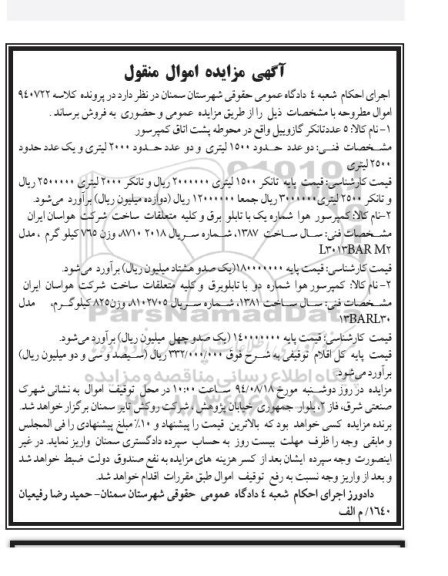 آگهی مزایده اموال منقول
اجرای احکام شعبه ۴ دادگاه عمومی حقوقی شهرستان سمنان در نظر دارد در پرونده کلاسه ۹۴۰۷۲۲
اموال مطروحه با مشخصات ذیل را از طریق مزایده عمومی و حضوری به فروش برساند.
۱- نام کالا: ۵ عدد تانکر گازوییل واقع در محوطه پشت اتاق کمپرسور
مشخصات فنی: دو عدد حدود ۱۵۰۰ لیتری و دو عدد حدود ۲۰۰۰ لیتری و یک عدد حدود
۲۵۰۰ لیتری
قیمت کارشناسی: قیمت پایه تانکر ۱۵۰۰ لیتری ۲۰۰۰۰۰۰ ریال و تانکر ۲۰۰۰ لیتری ۲۵۰۰۰۰۰ ریال
و تانکر ۲۵۰۰ لیتری ۳۰۰۰۰۰۰ ریال جمعا ۱۲۰۰۰۰۰۰ ریال (دوازده میلیون ریال) برآورد می‌شود.
۲- نام کالا: کمپرسور هوا شماره یک با تابلو برق و کلیه متعلقات ساخت شرکت هواسان ایران
مشخصات فنی: سال ساخت ۱۳۸۷، شماره سریال ۲۰۱۸ ۸۷۱۰، وزن ۷۶۵ کیلو گرم ، مدل
L۳۰۱۳BAR M۲
قیمت کارشناسی: قیمت پایه ۱۸۰۰۰۰۰۰۰ (یک صدو هشتاد میلیون ریال) برآورد می‌شود.
۲- نام کالا: کمپرسور هوا شماره دو با تابلوبرق و کلیه متعلقات ساخت شرکت هواسان ایران
مشخصات فنی: سال ساخت ۱۳۸۱، شماره سریال ۸۱۰۲۷۰۵، وزن ۸۲۵ کیلوگرم، مدل
۱۳BARL۳۰
قیمت کارشناسی: قیمت پایه ۱۴۰۰۰۰۰۰۰ (یک صدو چهل میلیون ریال) برآورد می‌شود.
قیمت پایه کل اقلام توقیفی به شرح فوق ۳۳۲/۰۰۰/۰۰۰ ریال (سیصد و سی و دو میلیون ریال)
برآورد می‌شود.
مزایده در روز دوشنبه مورخ ۹۴/۰۸/۱۸ ساعت ۱۰:۰۰ در محل توقیف اموال به نشانی شهرک
صنعتی شرق، فاز ۲، بلوار جمهوری خیابان پژوهش ۱ شرکت روکش تایر سمنان برگزار خواهد شد.
برنده مزایده کسی خواهد بود که بالاترین قیمت را پیشنهاد و ۱۰٪ مبلغ پیشنهادی را فی المجلس
و مابقی وجه را ظرف مهلت بیست روز به حساب سپرده دادگستری سمنان واریز نماید. در غیر
اینصورت وجه سپرده ایشان بعد از کسر هزینه های مزایده به نفع صندوق دولت ضبط خواهد شد
و بعد از واریز وجه نسبت به رفع توقیف اموال طبق مقررات اقدام خواهد شد.
دادورز اجرای احکام شعبه ۴ دادگاه عمومی حقوقی شهرستان سمنان- حمید رضا رفیعیان
۱۶۴۰/ م الف